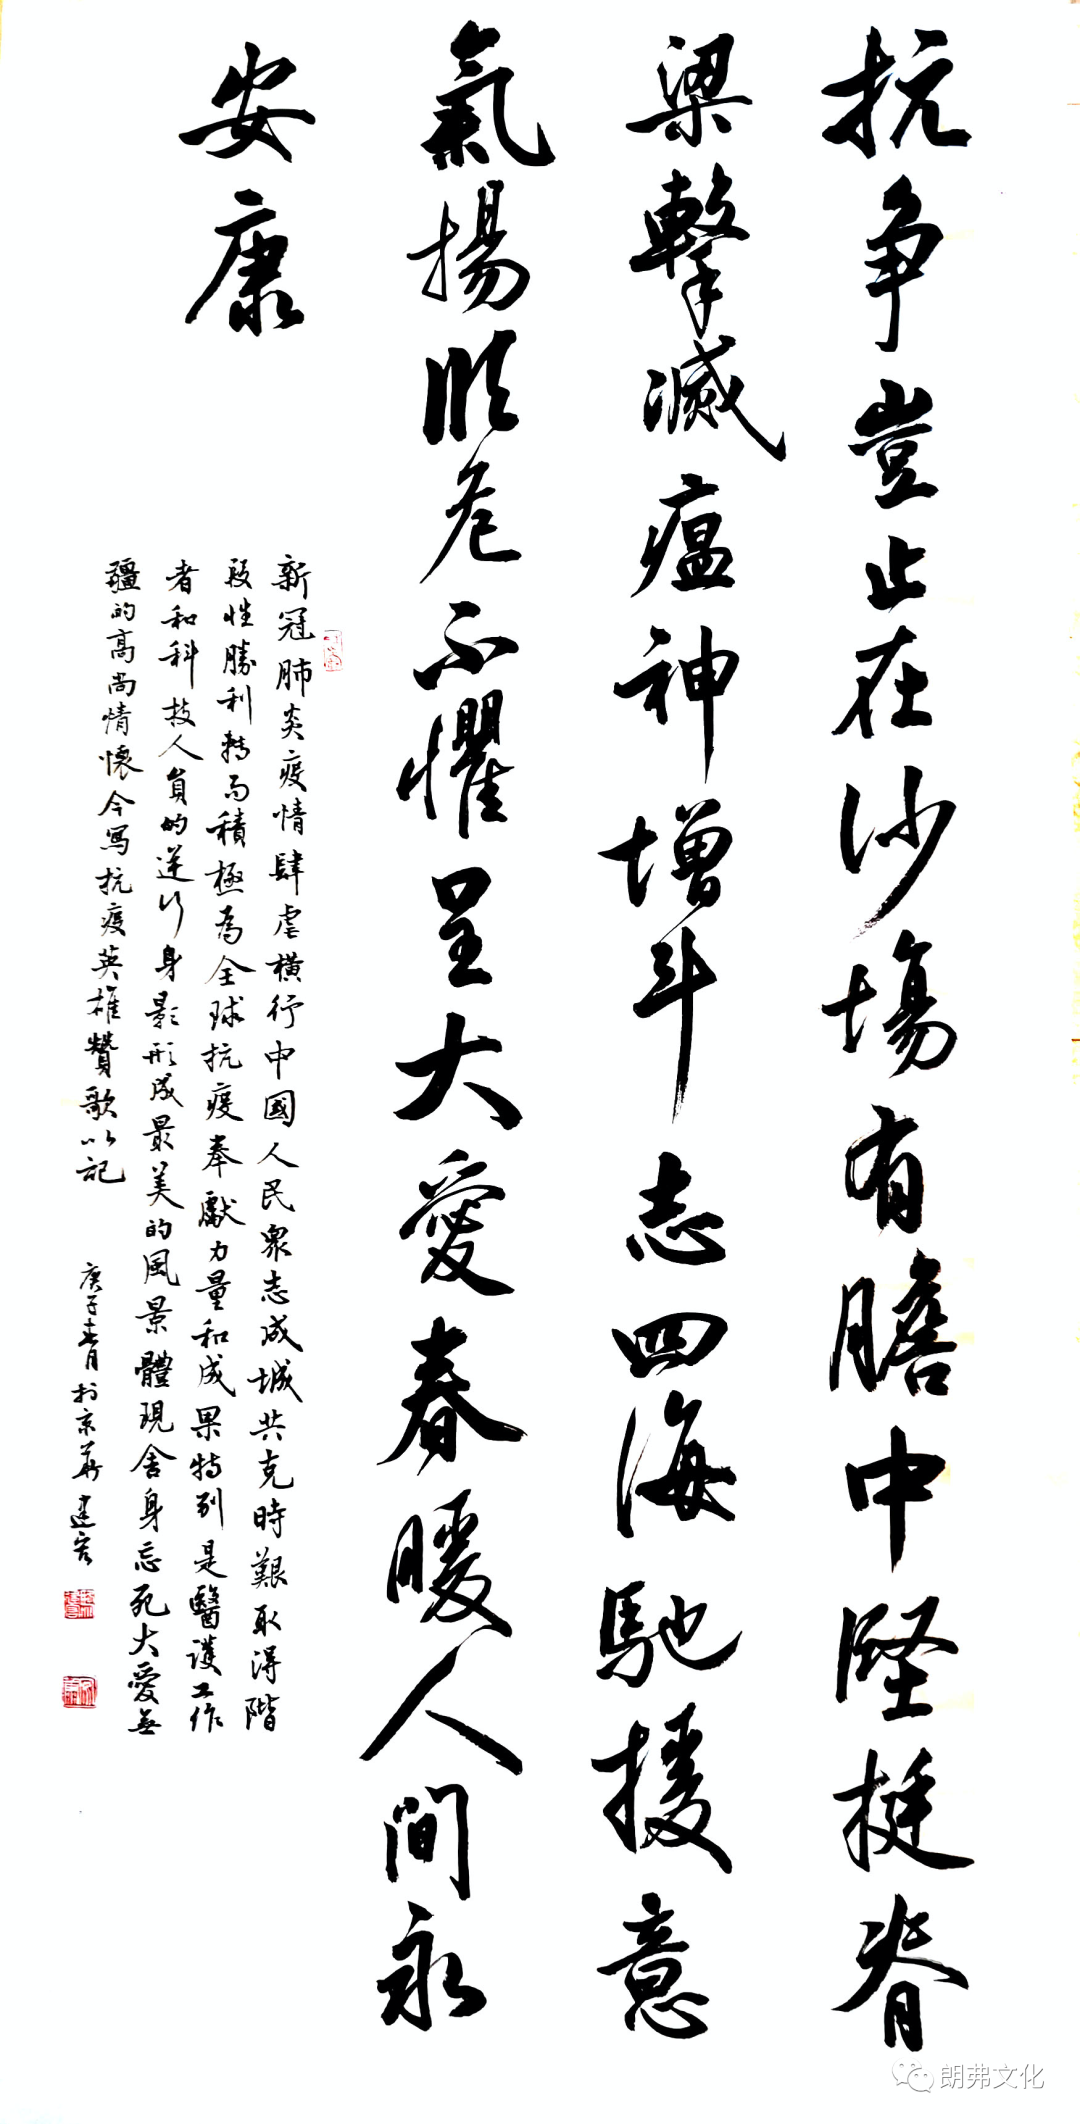 抗争豈止在沙場有膽中堅挺脊
梁擊滅瘟神增斗志四海馳援意
氣揚臨危不懼呈大愛春暖人間永
安康
新冠肺炎疫情肆虐橫行中國人民衆志成城共克時艱取得階
段性勝利轉而積極為全球抗疫奉獻力量和成果特别是醫護工作
者和科技人員的逆行身影形成最美的風景體現舍身忘死大愛無
疆的高尚情懷今寫抗疫英雄贊歌以記
庚子春月於京華建宏
朗弗文化